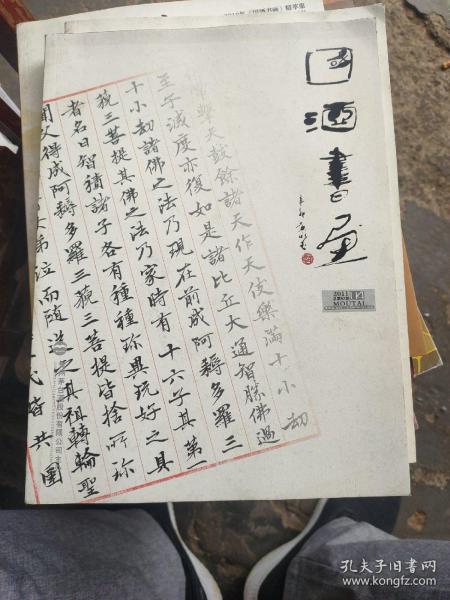 国酒書画
2011
MOUTAI
擊天鼓餘諸天作天伎樂滿十小劫
至于滅度亦復如是諸比丘大通智勝佛過
十小劫諸佛之法乃現在前成阿耨多羅三
藐三菩提其佛之法乃家時有十六子其第一
者名曰智積諸子各有種種珎異玩好之具
聞父得成阿耨多羅三藐三菩提皆捨所珎
泣而隨送之其祖轉輪聖
民皆共圍
股份有限公司
孔夫子旧书网
www.kongfz.com